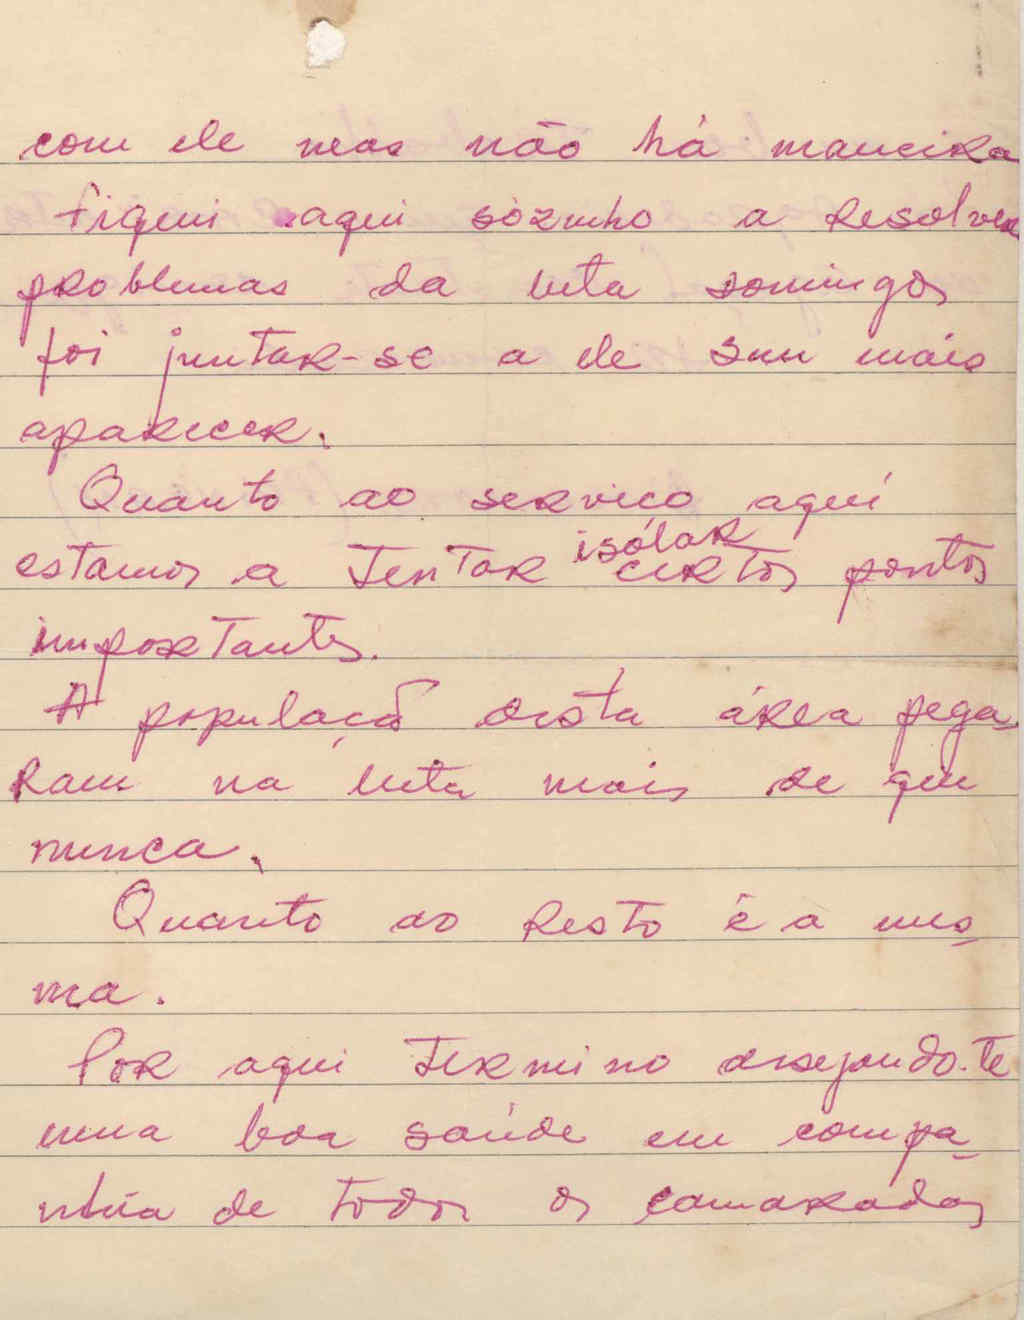 com ele mas não há maneira
fiquei aqui sòzinho a resolver
problemas da luta Domingos
foi juntar-se a ele sem mais
aparecer.
Quanto ao serviço aqui
estamos a tentar isólar certos pontos
importantes.
A população desta área pega-
ram na luta mais de que
nunca.
Quanto ao resto é a mes-
ma.
Por aqui termino desejando-te
uma boa saúde em compa-
nhia de todos os camaradas